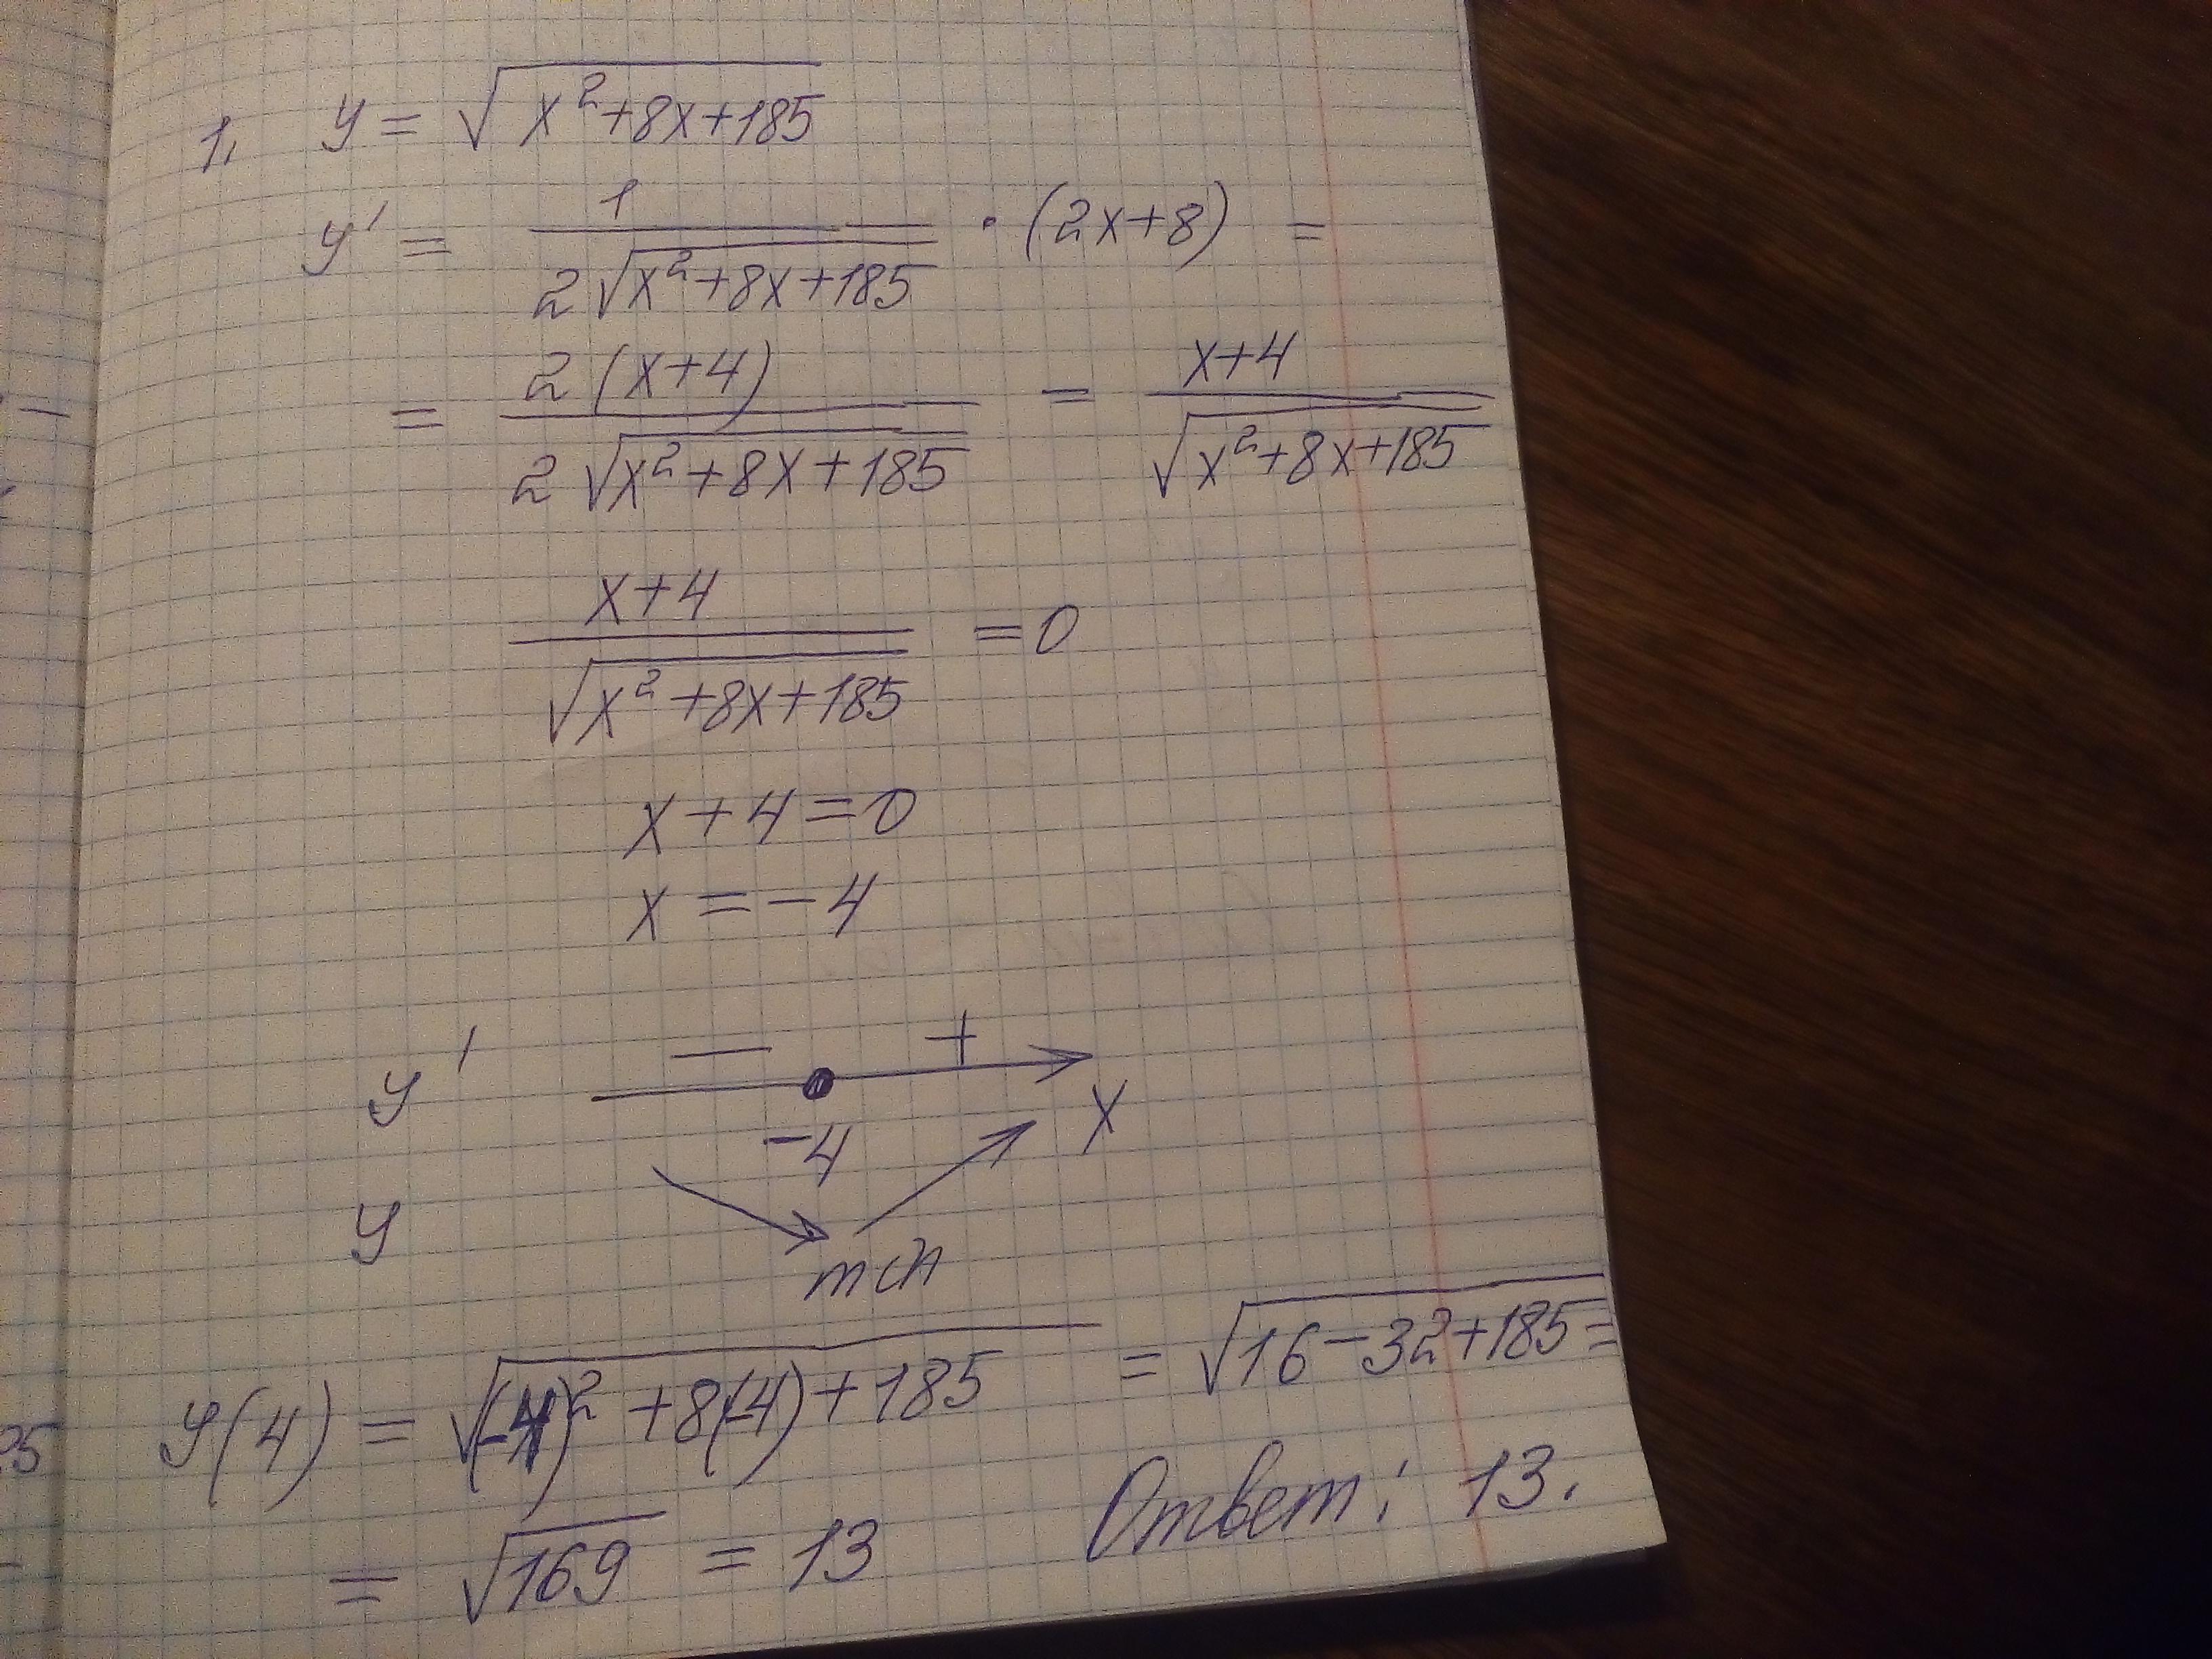 1. y = √(x²+8x+185)
y' = 1/(2√(x²+8x+185)) · (2x+8) =
= 2(x+4)/(2√(x²+8x+185)) = (x+4)/√(x²+8x+185)
(x+4)/√(x²+8x+185) = 0
x+4=0
x = -4
y' — + x
-4
y
min
y(4) = √((-4)²+8(-4)+185) = √(16-32+185) =
= √169 = 13
Ответ: 13.